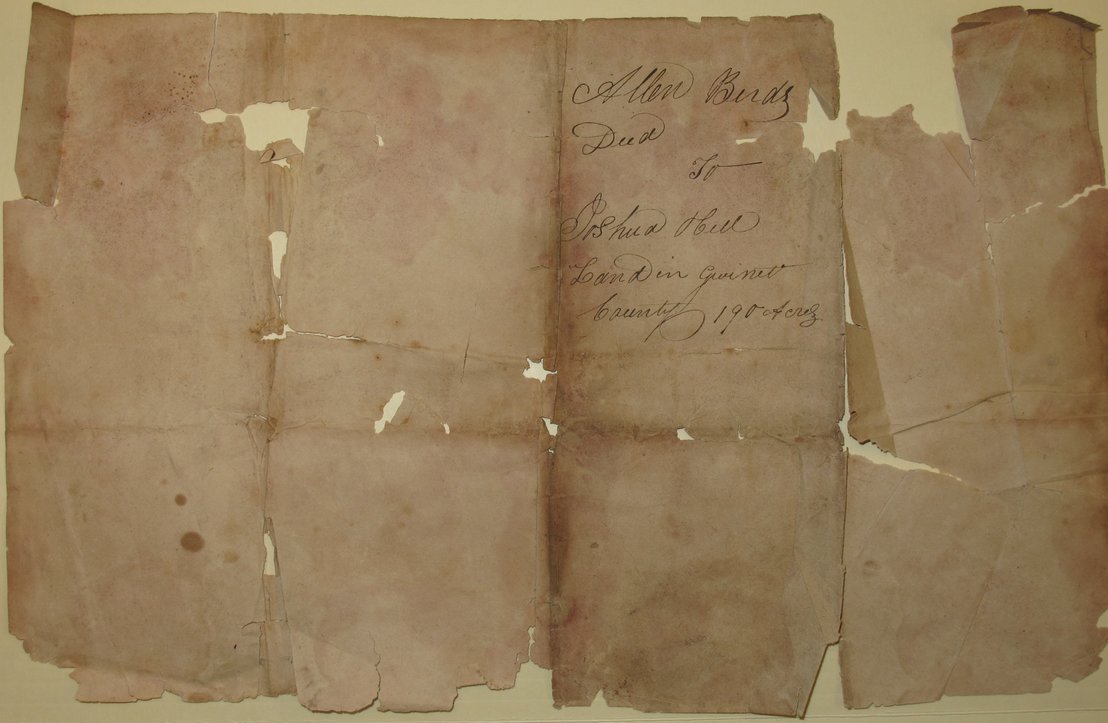 Allen Birds
Deed
To
Joshua Hill
Land in Gwinet
County 190 Acres